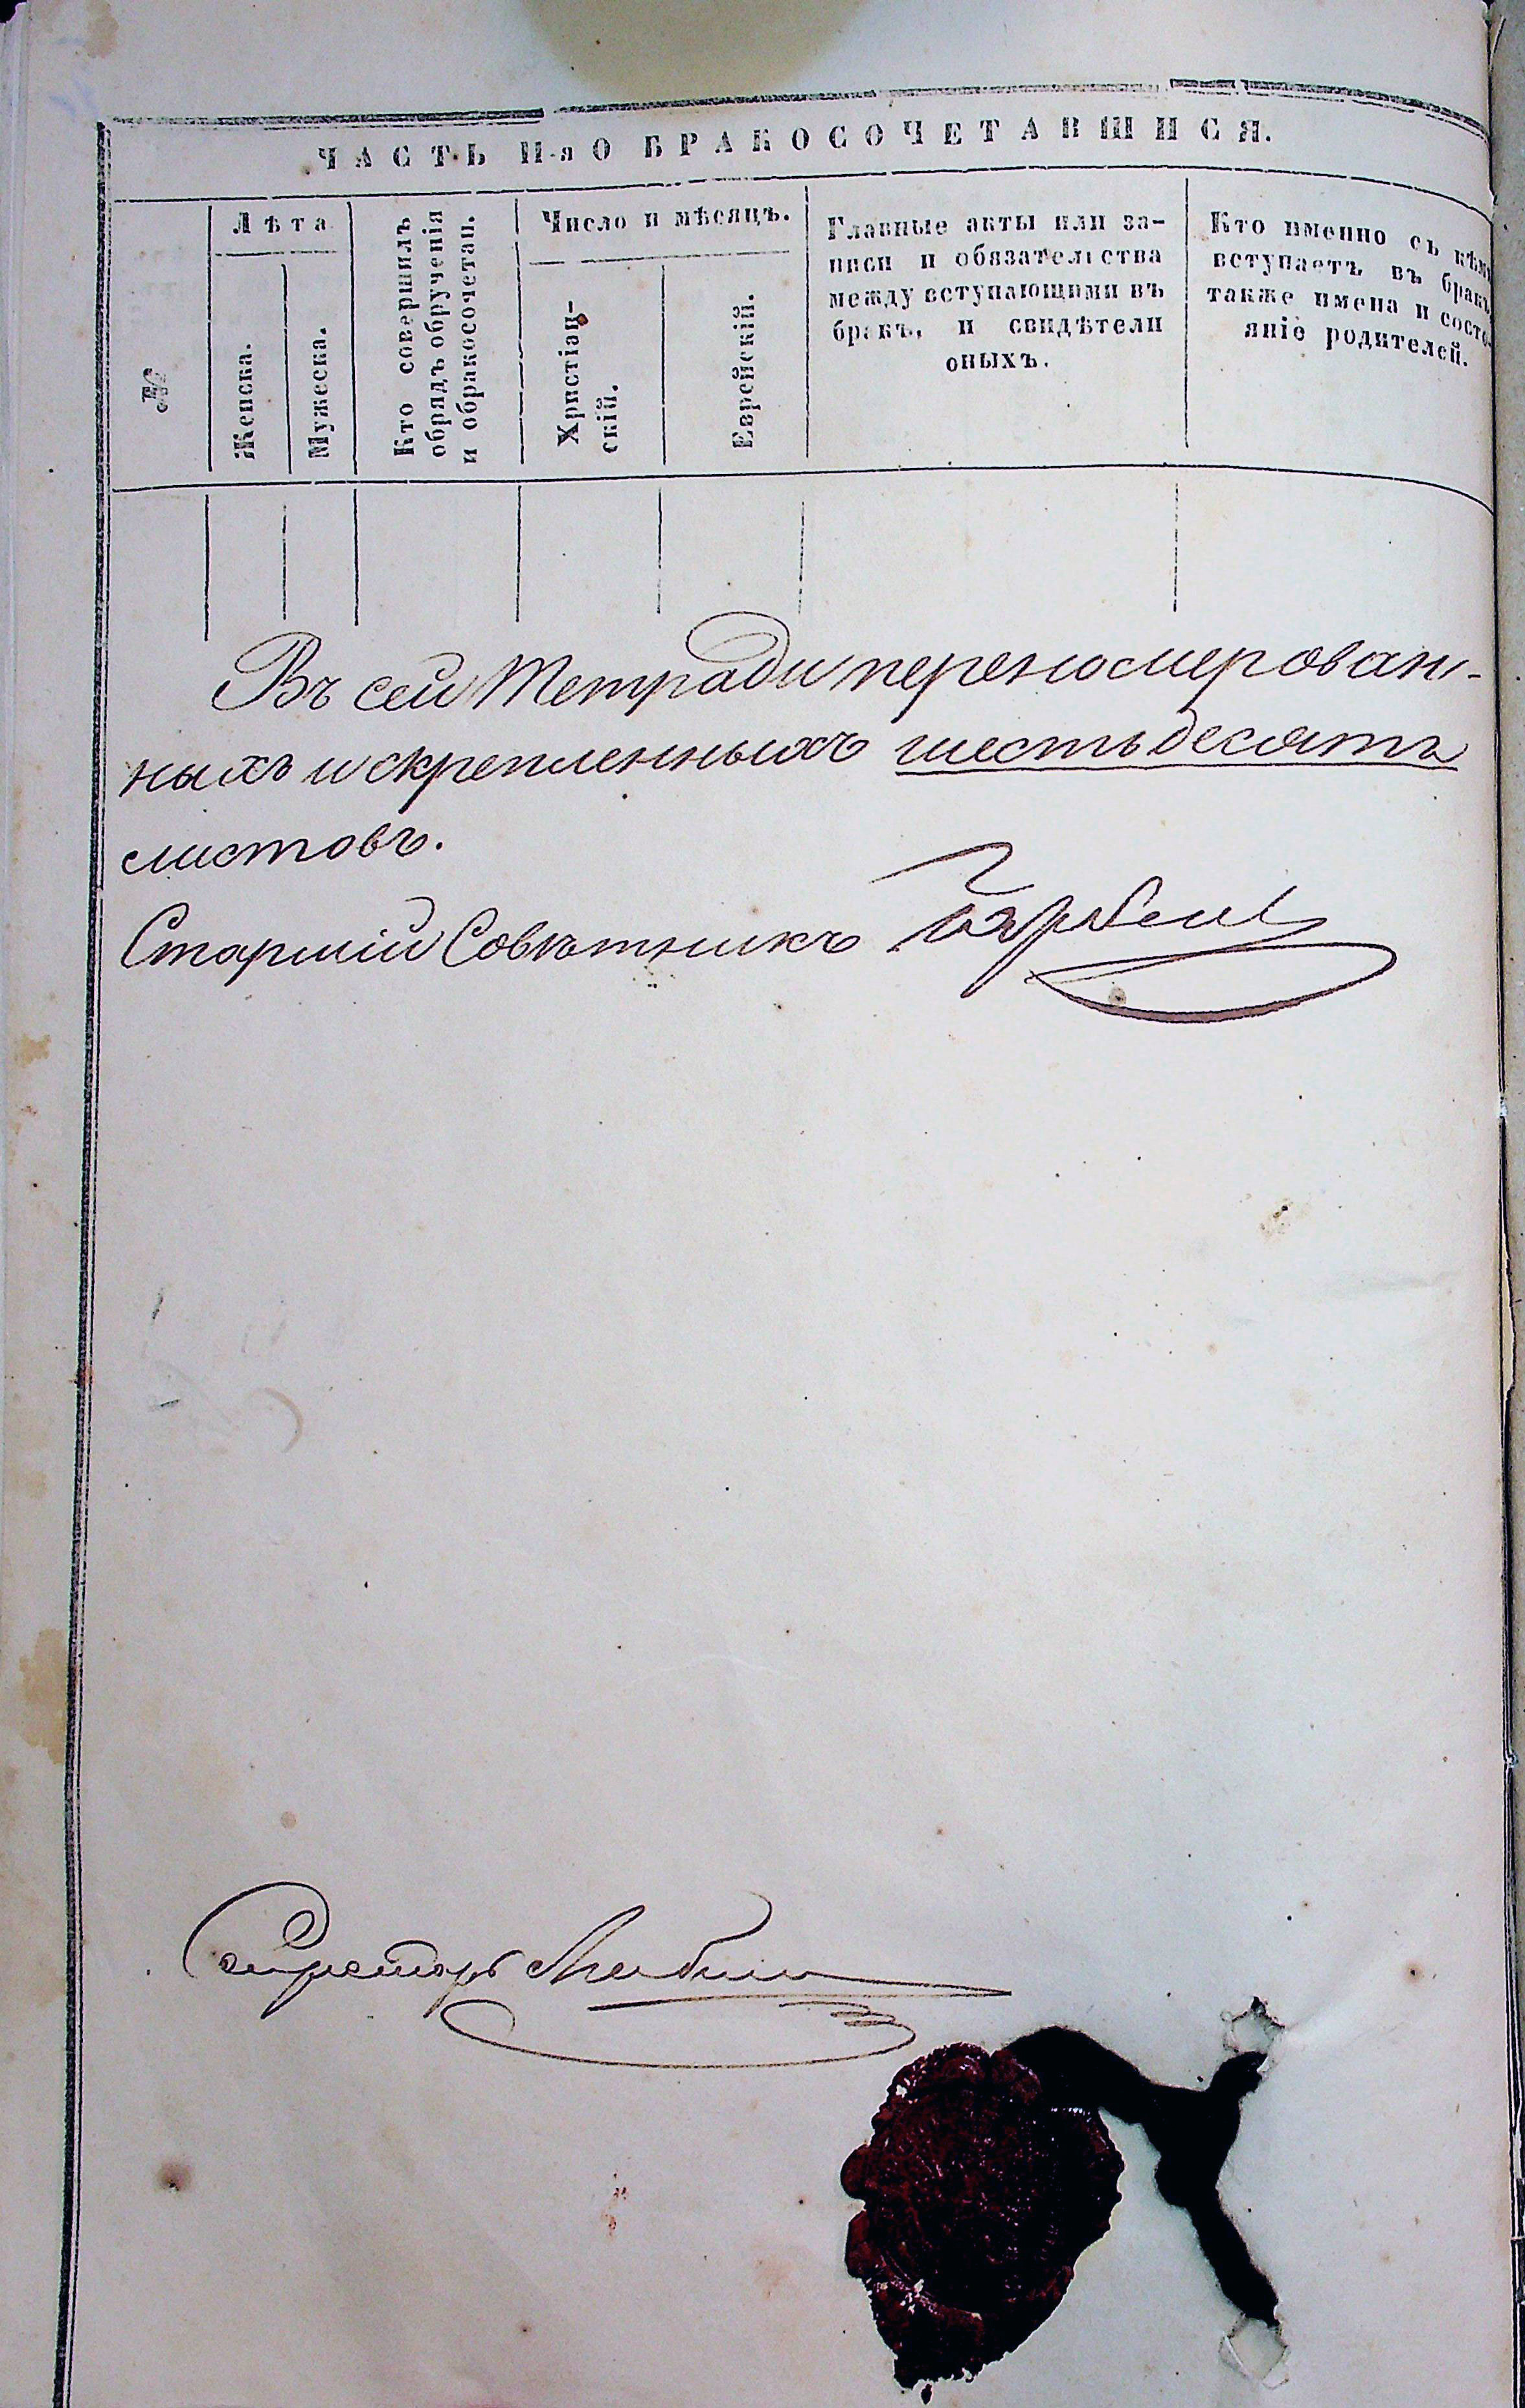 ЧАСТЬ II-я О БРАКОСОЧЕТАВШИСЯ.
№
Лѣта
Женска.
Мужеска.
Кто совершилъ
обрядъ обрученія
и обракосочетан.
Число и мѣсяцъ.
Христіан-
скій.
Еврейскій.
Главные акты или за-
писи и обязательства
между вступающими въ
бракъ, и свидѣтели
оныхъ.
Кто именно съ кѣмъ
вступаетъ въ бракъ,
также имена и состо-
яніе родителей.
Въ сей Тетради переномерован-
ныхъ и скрепленныхъ шестьдесятъ
листовъ.
Старшій Совѣтникъ
Секретарь